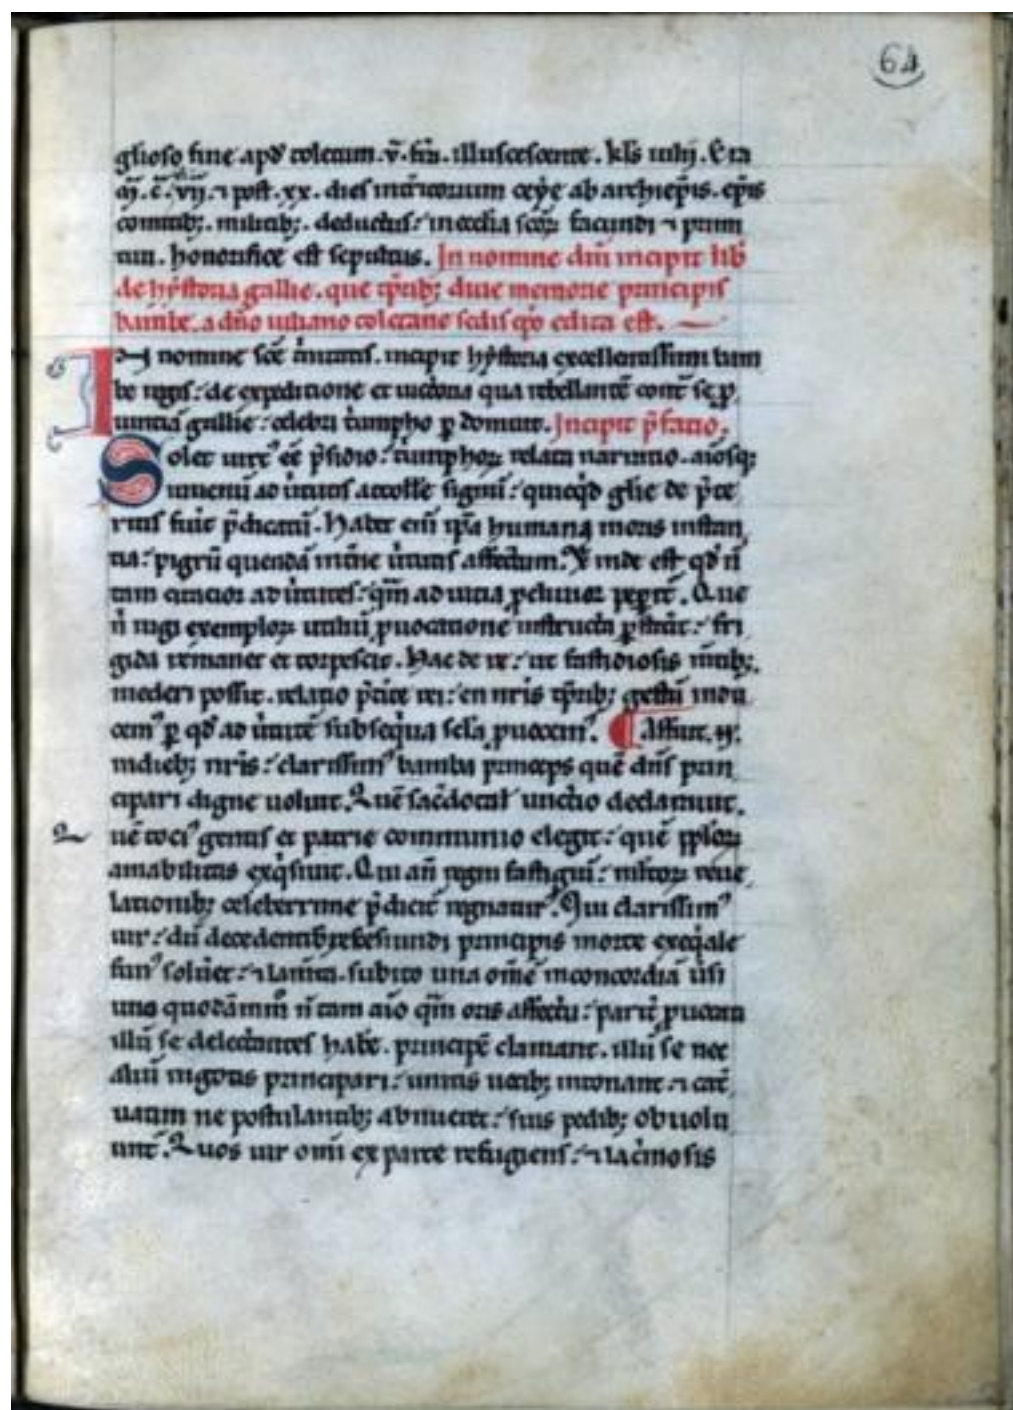 64
glioso fine apd' toletum .v. fr̄a. illuscescente. kl̄s iulii. Era
. c̄. vii. ⁊ post .xx. dies ab archiep̄is. ep̄is
comitib;. militib;. deductus: in ecclīa sc̄oꝝ facundi ⁊ primi
tiui. honorifice est sepultus. In nomine dn̄i incipit lib̄
de hystoria gallie. que tp̄rib; diue memorie principis
bambe. a dn̄o iuliano toletane sedis ep̄o edita est.
IN nomine sc̄e t̄nitatis. incipit hystoria excellentissimi bam
be regis: de expeditione et uictoria qua rebellantē cont̄ se ꝓ
uinciā gallie: celebri t̄umpho ꝑdomuit. Incipit p̄fatio.
Solet uirt' eē p̄sidio: t̄umphoꝝ relata narratio. aīosq;
iuuenū ad u̇tutis attoll'e signū: quicq̇d glīe de p̄te
ritis fuit p̄dicatū. Habet enī humana moris instan
tia: pigrū quendā u̇tutis affectum. Et inde est qd' n̄
tam ad u̇tutes: qm̄ ad uitia ꝓcliuior Que
n̄ iugi exemploꝝ utiliū ꝓuocatione instructa fri
gida remanet et torpescit. Hac de re: ut fastidiosis m̄tib;
mederi possit. relatio p̄t̄ite rei: en nr̄is tp̄rib; gestū indu
cem' ꝑ qd' ad u̇tutē subseq̇tiua sc̄la ꝓuocem'. ¶ Affuit. n̄.
in dieb; nr̄is: clarissim' bamba princeps quē dn̄s prin
cipari digne uoluit. Quē sac̄dotal' unctio declarauit.
Q uē toci' gentis et patrie communio elegit: quē pp̄loꝝ
amabilitas exq̇siuit. Qui an̄ regni fastigiū: mltoꝝ reue
lationib; celeberrime p̄dicit' regnatur'. Qui clarissim'
uir: dū decedentis recesuindi principis morte exeq̇ale
fun' soluēt: ⁊ lam̄ta. subito una om̄e inconcordiā u̇si
uno quodāmm̊ n̄ tam aīo qm̄ oris affectu: parit̄ ꝓuocati
illū se delectantes habē. principē clamant. illū se nec
aliū in gotis principari: unitis uocib; intonant. ⁊ cat̄
uatim ne postulantib; abnueret: suis pedib; obuolu
unt̄. Quos uir om̄i ex parte refugiens: ⁊ lac̄imosis